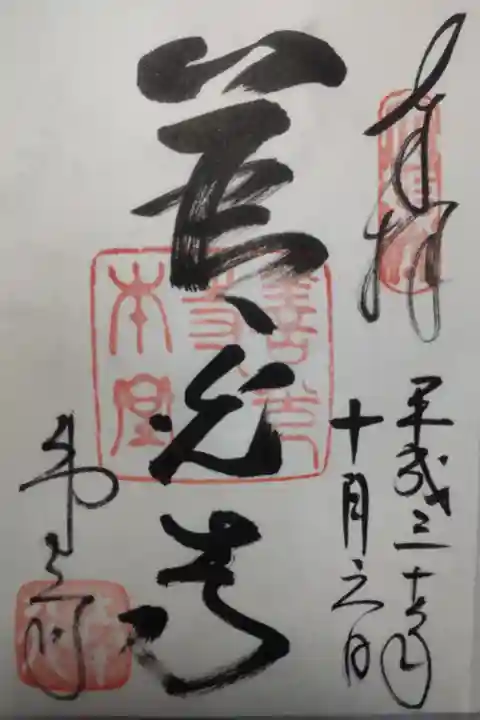 奉拝
平成三十年
十月六日
善光寺
善光寺本堂